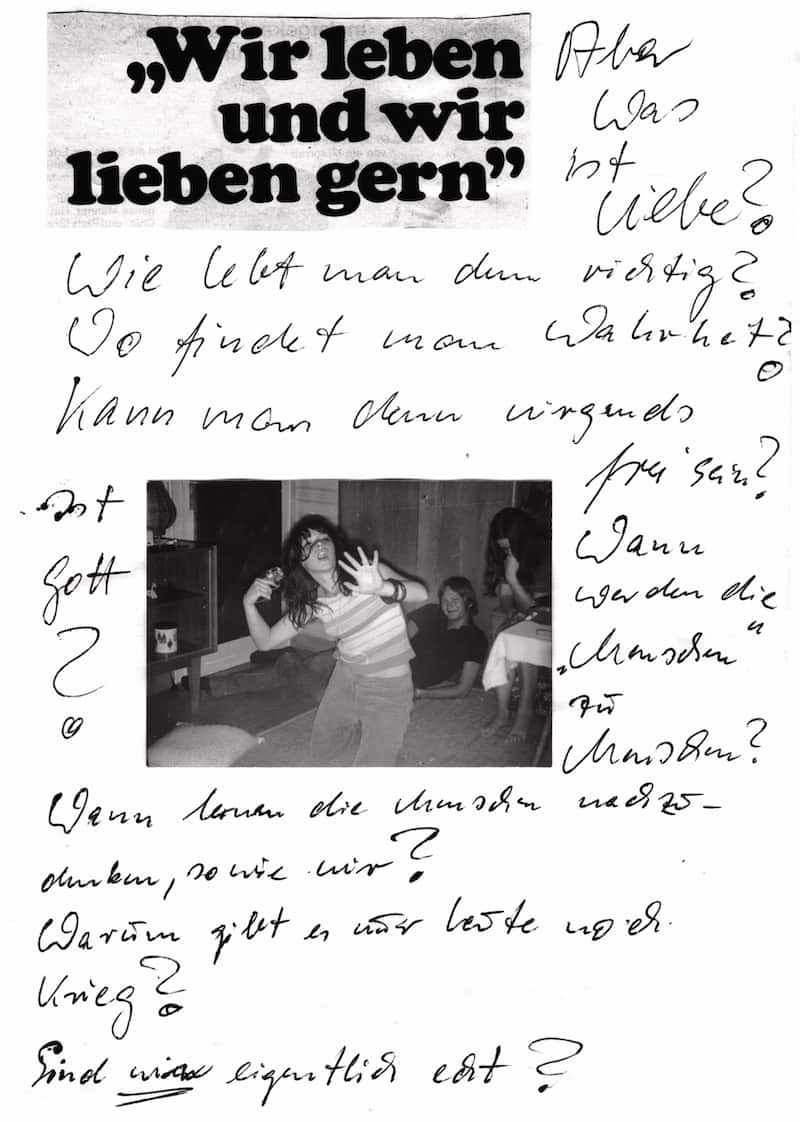 „Wir leben
und wir
lieben gern”
Aber
was
ist
Liebe?
Wie lebt man denn richtig?
Wo findet man Wahrheit?
Kann man denn nirgends
frei sein?
Ist
Gott
?
Wann
werden die
„Menschen"
zu
Menschen?
Wann lernen die Menschen nachzu-
denken, so wie wir?
Warum gibt es heute noch
Krieg?
Sind wir eigentlich echt?